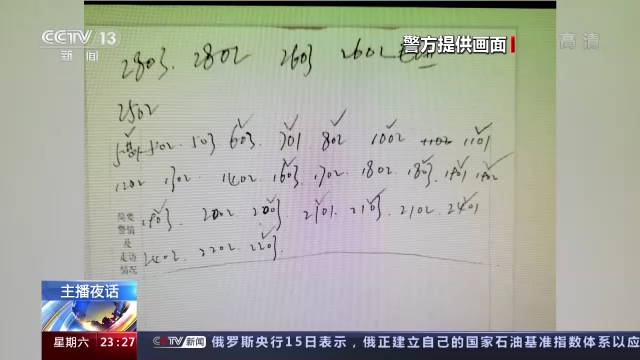 CCTV 13
新闻
警方提供画面
高清
2803. 2802 2603 2602
2502
502. 503 603. 701 802 1002 1101
1202 1302. 1402. 1603. 1702. 1802. 1803. 1901
1903. 2002 2003. 2101. 2103. 2102. 2401
简要
警情
及
走访
情况
2402. 2202 2203.
主播夜话
星期六 23:27
CCTV 新闻 俄罗斯央行15日表示，俄正建立自己的国家石油基准指数体系以应